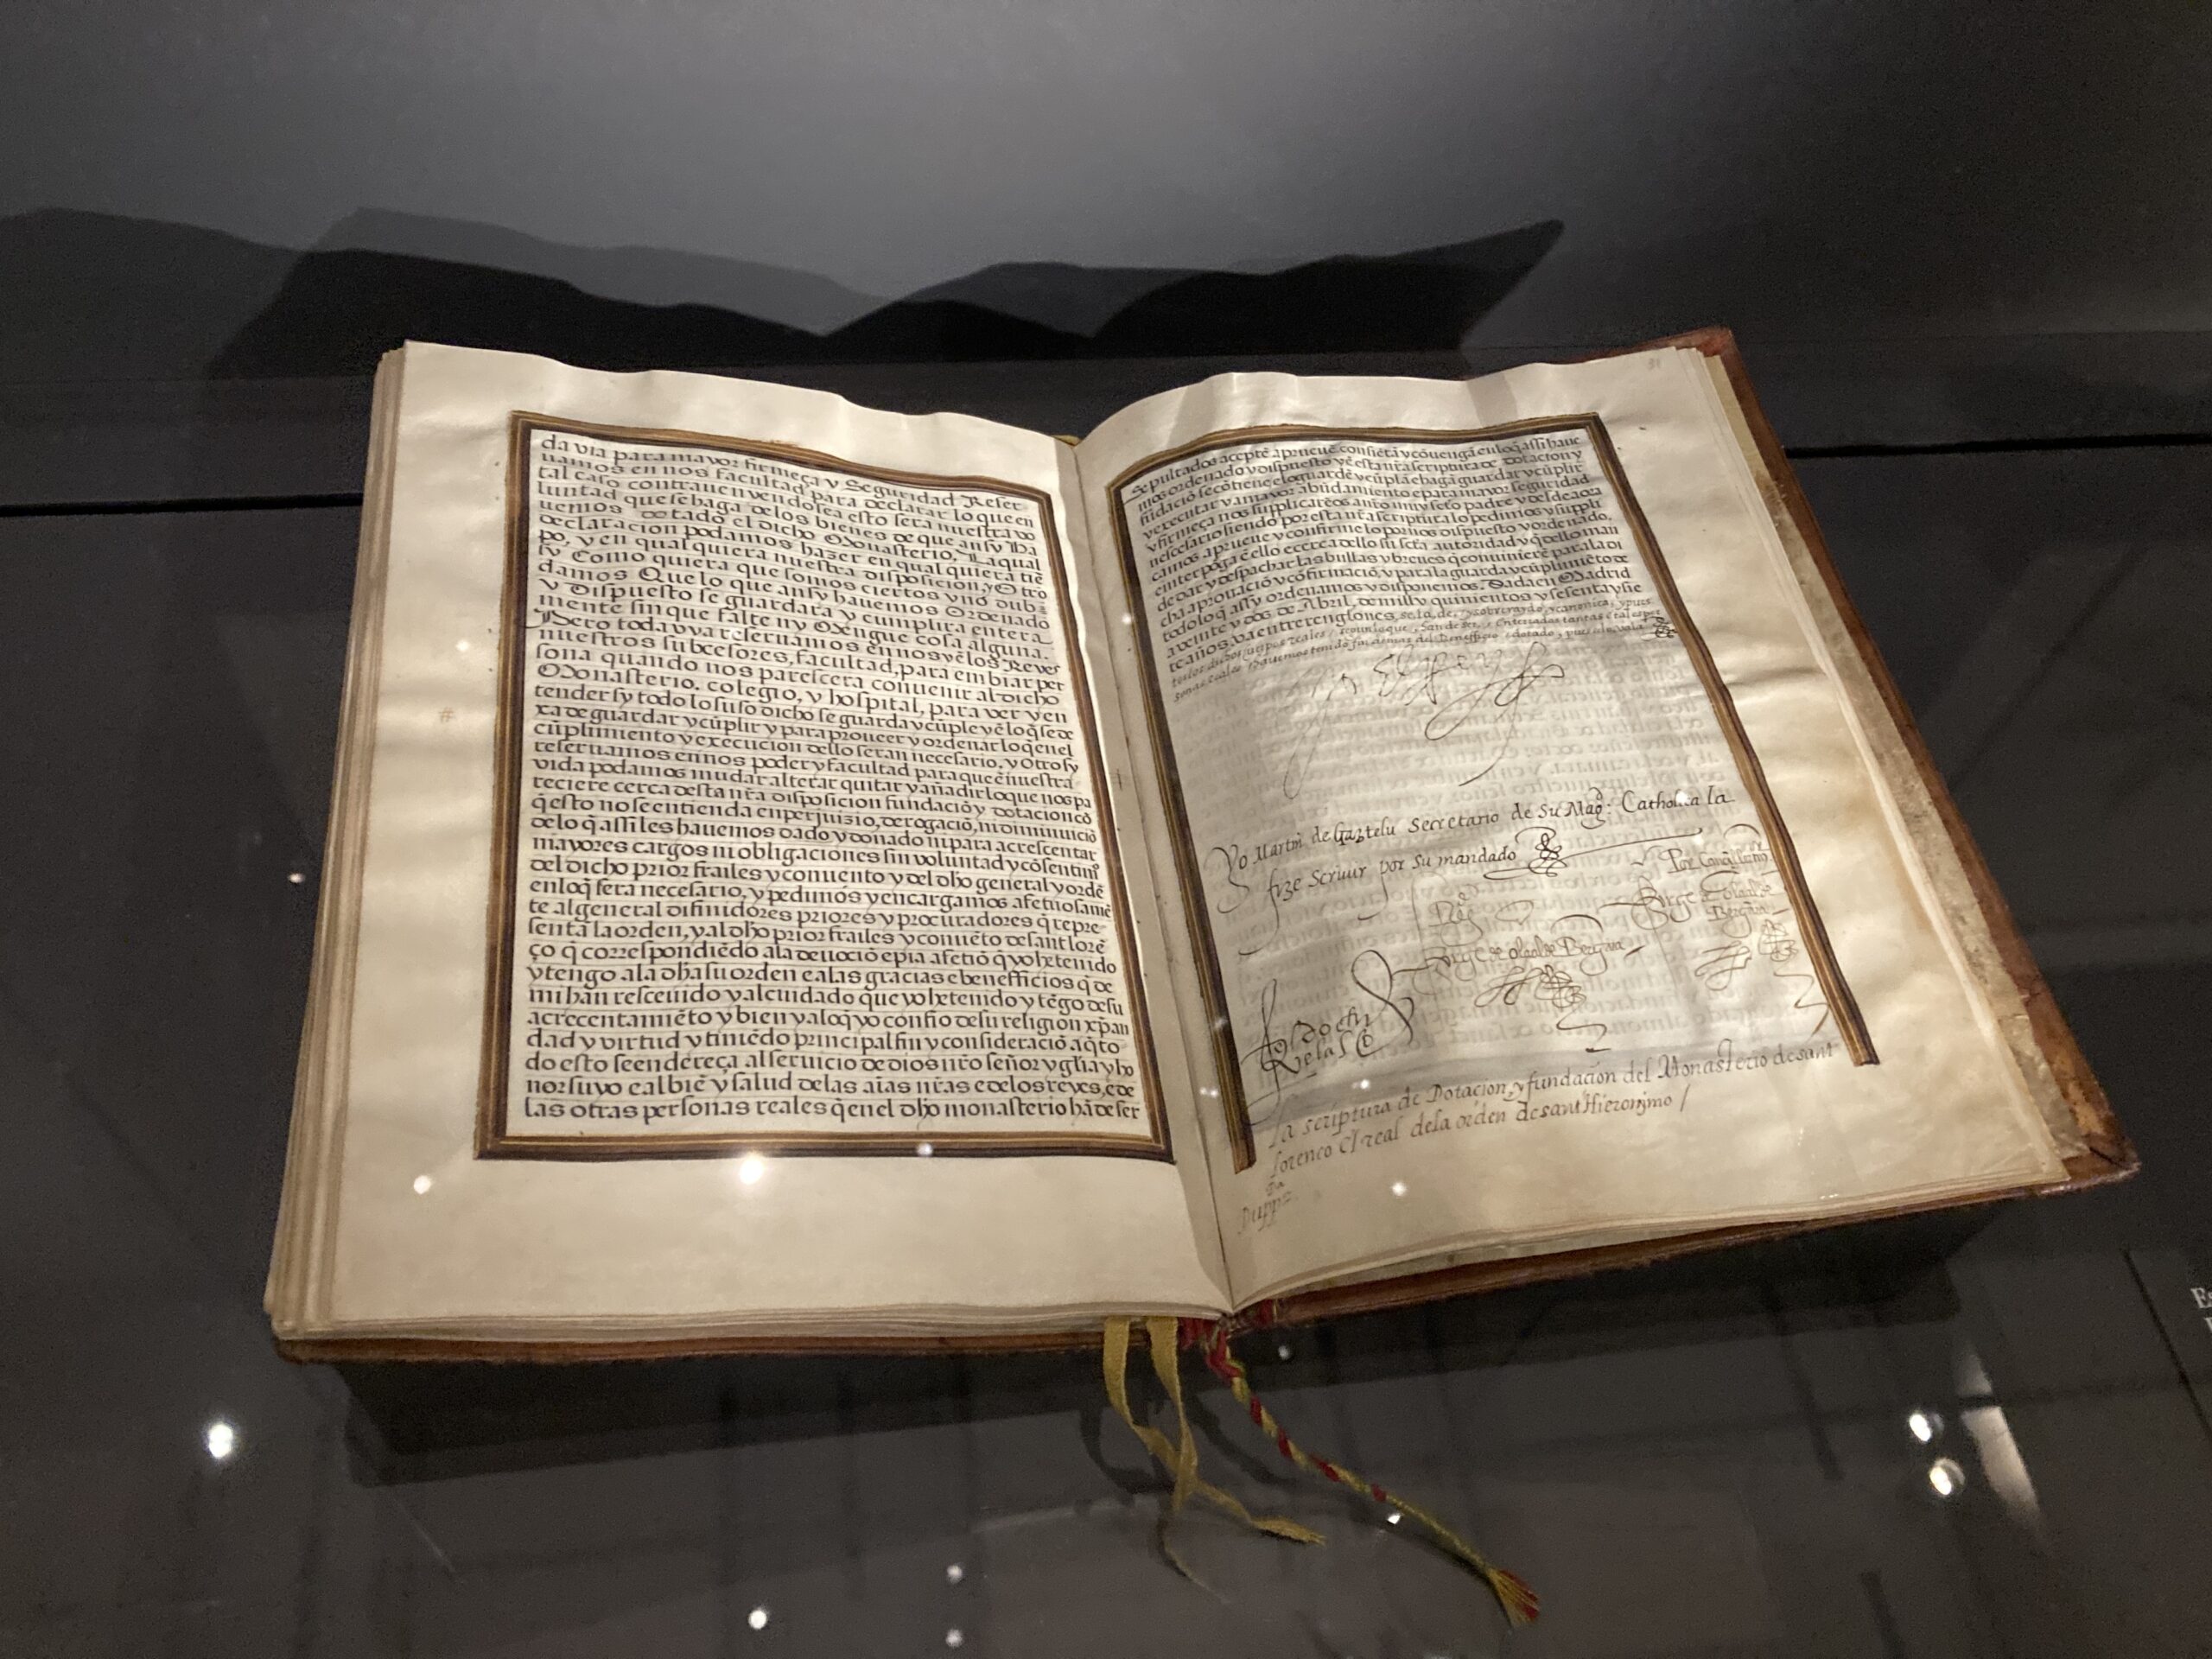 da via para mayor firmeça y Seguridad Reser
uamos en nos facultad para declarar lo que en
tal caso contraueniendosea esto sera nuestra vo
luntad que se haga de los bienes de que ansy ha
uemos dotado el dicho Monasterio, Laqual
declaracion podamos hazer en qual quiera tiẽ
po, y en qual quiera nuestra disposicion, y Otro
sy Como quiera que somos ciertos y nõ dub
damos Que lo que ansy hauemos Ordenado
y Dispuesto se guardara y cumplira entera
mente sin que falte ny Mengue cosa alguna.
Pero toda vya reseruamos en nos y ẽ los Reyes
nuestros subcesores, facultad, para embiar per
sona quando nos paresciera conuenir al dicho
Monasterio. colegio, y hospital, para ver y en
tender sy todo lo suso dicho se guarda y cũple y ẽ lo q̃ se de
xa de guardar y cũplir y para proueer y ordenar lo q̃ en el
cũplimiento y execucion dello seran necesario, y Otro sy
reseruamos en nos poder y facultad para que ẽ nuestra
vida podamos mudar alterar quitar y añadir lo que nos pa
reciere cerca desta nr̃a disposicion fundaciõ y dotacion cõ
q̃ esto no se entienda en perjuizio, derogaciõ, ni diminuiciõ
de lo q̃ assi les hauemos dado y donado ni para acrescentar
mayores cargos ni obligaciones sin voluntad y cõsentimj̃º
del dicho prior frailes y conuento y del dh̃o general y ordẽ
en lo q̃ sera necesario, y pedimos y encargamos afetuosamẽ
te al general difinidores priores y procuradores q̃ repre
sentã la orden, y al dh̃o prior frailes y conuẽto de sant lorẽ
ço q̃ correspondiẽdo a la deuociõ e pia afetiõ q̃ yo he tenido
y tengo a la dh̃a su orden e a las gracias e benefficios q̃ de
mi han resceuido y al cuidado que yo he tenido y tẽgo de su
acrecentamiẽto y bien y a lo q̃ yo confio de su religion xp̃an
dad y virtud y tiniẽdo principal fin y consideraciõ a q̃ to
do esto se endereça al seruicio de dios nr̃o señor y gl̃ia y ho
nor suyo e al biẽ y salud de las aĩas nr̃as e de los reyes, e de
las otras personas reales q̃ en el dh̃o monasterio hã de ser
31
Sepultados acceptẽ aprueuẽ consiẽtã y cõuengã en lo q̃ assi haue
mos ordenado y dispuesto y ẽ esta nr̃a scriptura de dotacion y
fũdaciõ se cõtiene e lo guardẽ y cũplã e hagã guardar y cũplir
y executar y a mayor abũdamiento e para mayor seguridad
y firmeça nos supplicarẽos a nr̃o muy scto padre y desde aora
nescesario siendo por esta nr̃a scriptura lo pedimos y suppli
camos aprueue y confirme lo por nos dispuesto y ordenado,
e interpõga ẽ ello e cerca dello su sctã autoridad y q̃ dello man
de dar y despachar las bullas y breues q̃ conuinierẽ para la di
cha aprouaciõ y cõfirmaciõ, y para la guarda y cũplimiẽto de
todo lo q̃ assy ordenamos y disponemos. Dada en Madrid
a veinte y dos de Abril, de mill y quinientos y sesenta y sie
te años. va entre renglones,
yo el Rey
Yo Martin de Gaztelu Secretario de Su Magd. Catholica la
fize Scriuir por su mandado
Por Canciller mor.
Jorge de olaal de
Bergara
Regda
Jorge de olaal de Bergara
El doctor
Velasco
La scriptura de Dotacion, y fundacion del Monasterio de sant
Lorenco El real dela orden de sant Hieronjmo /